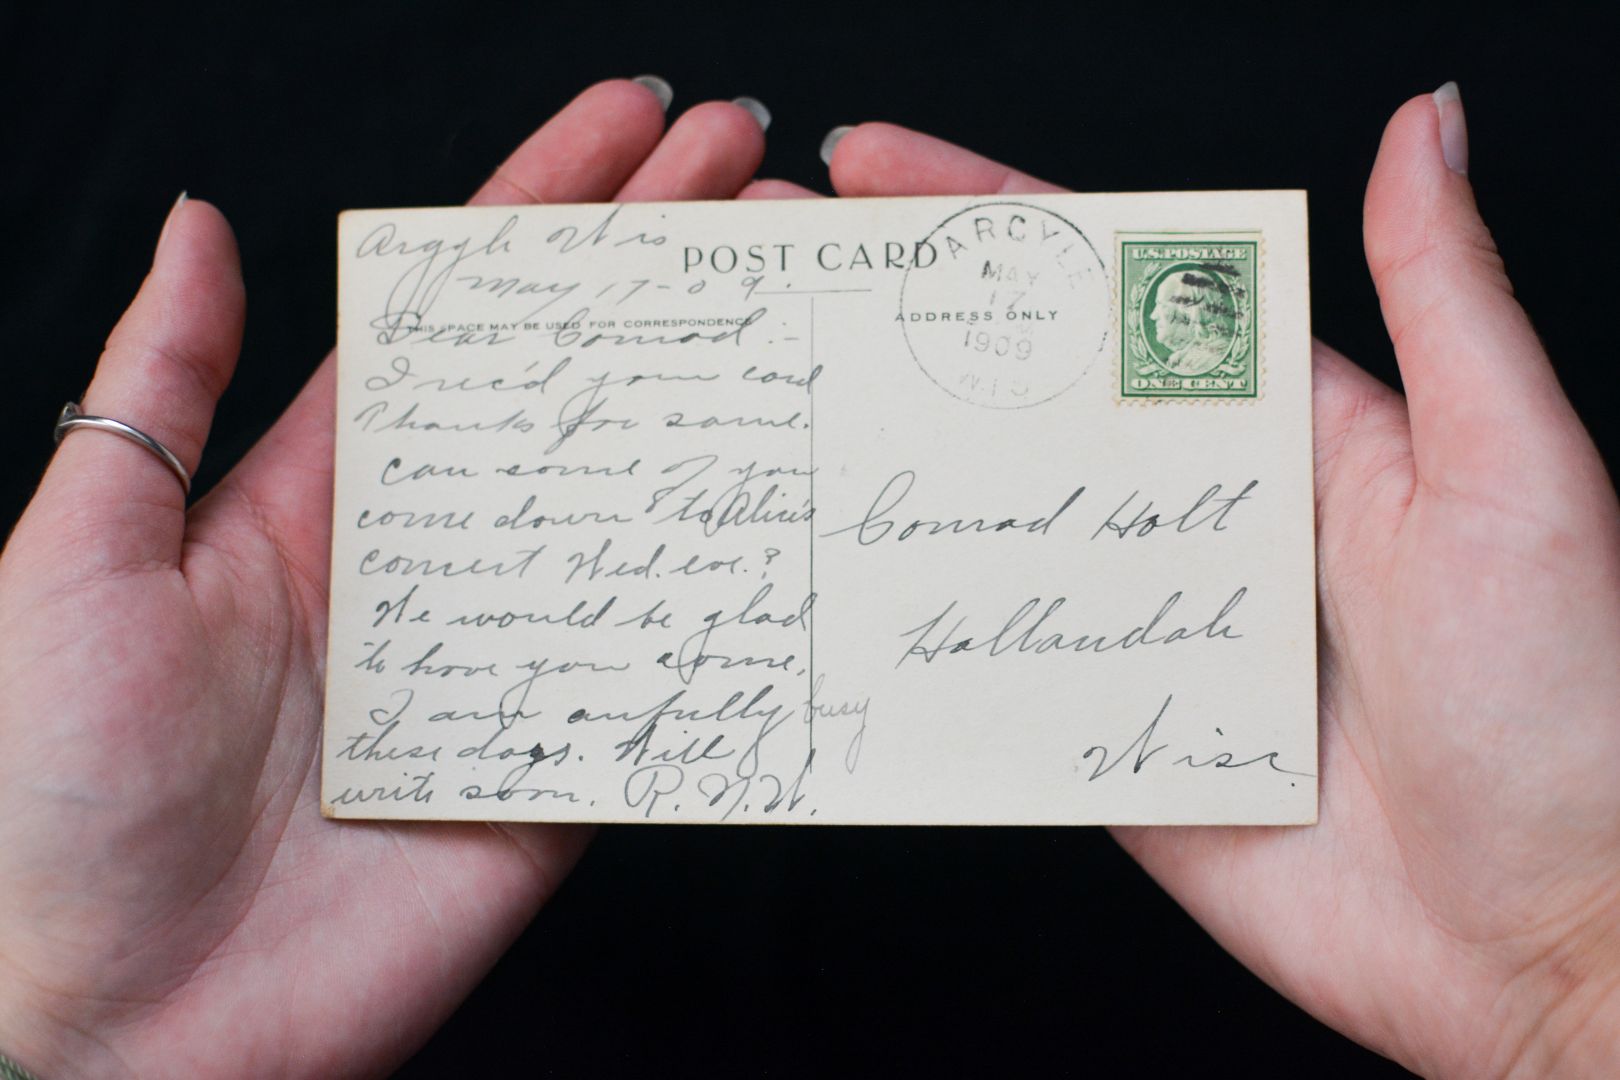 Argyle Wis
May 17-09.
POST CARD
THIS SPACE MAY BE USED FOR CORRESPONDENCE
Dear Conrad:-
I rec'd your card
Thanks for same.
Can some of you
come down to Alice's
concert Wed. eve.?
We would be glad
to have you come.
I am awfully busy
these days. Will
write soon. R.N.W.
ARGYLE
MAY
17
1909
WIS
U.S. POSTAGE
ONE CENT
ADDRESS ONLY
Conrad Holt
Hollandale
Wisc.